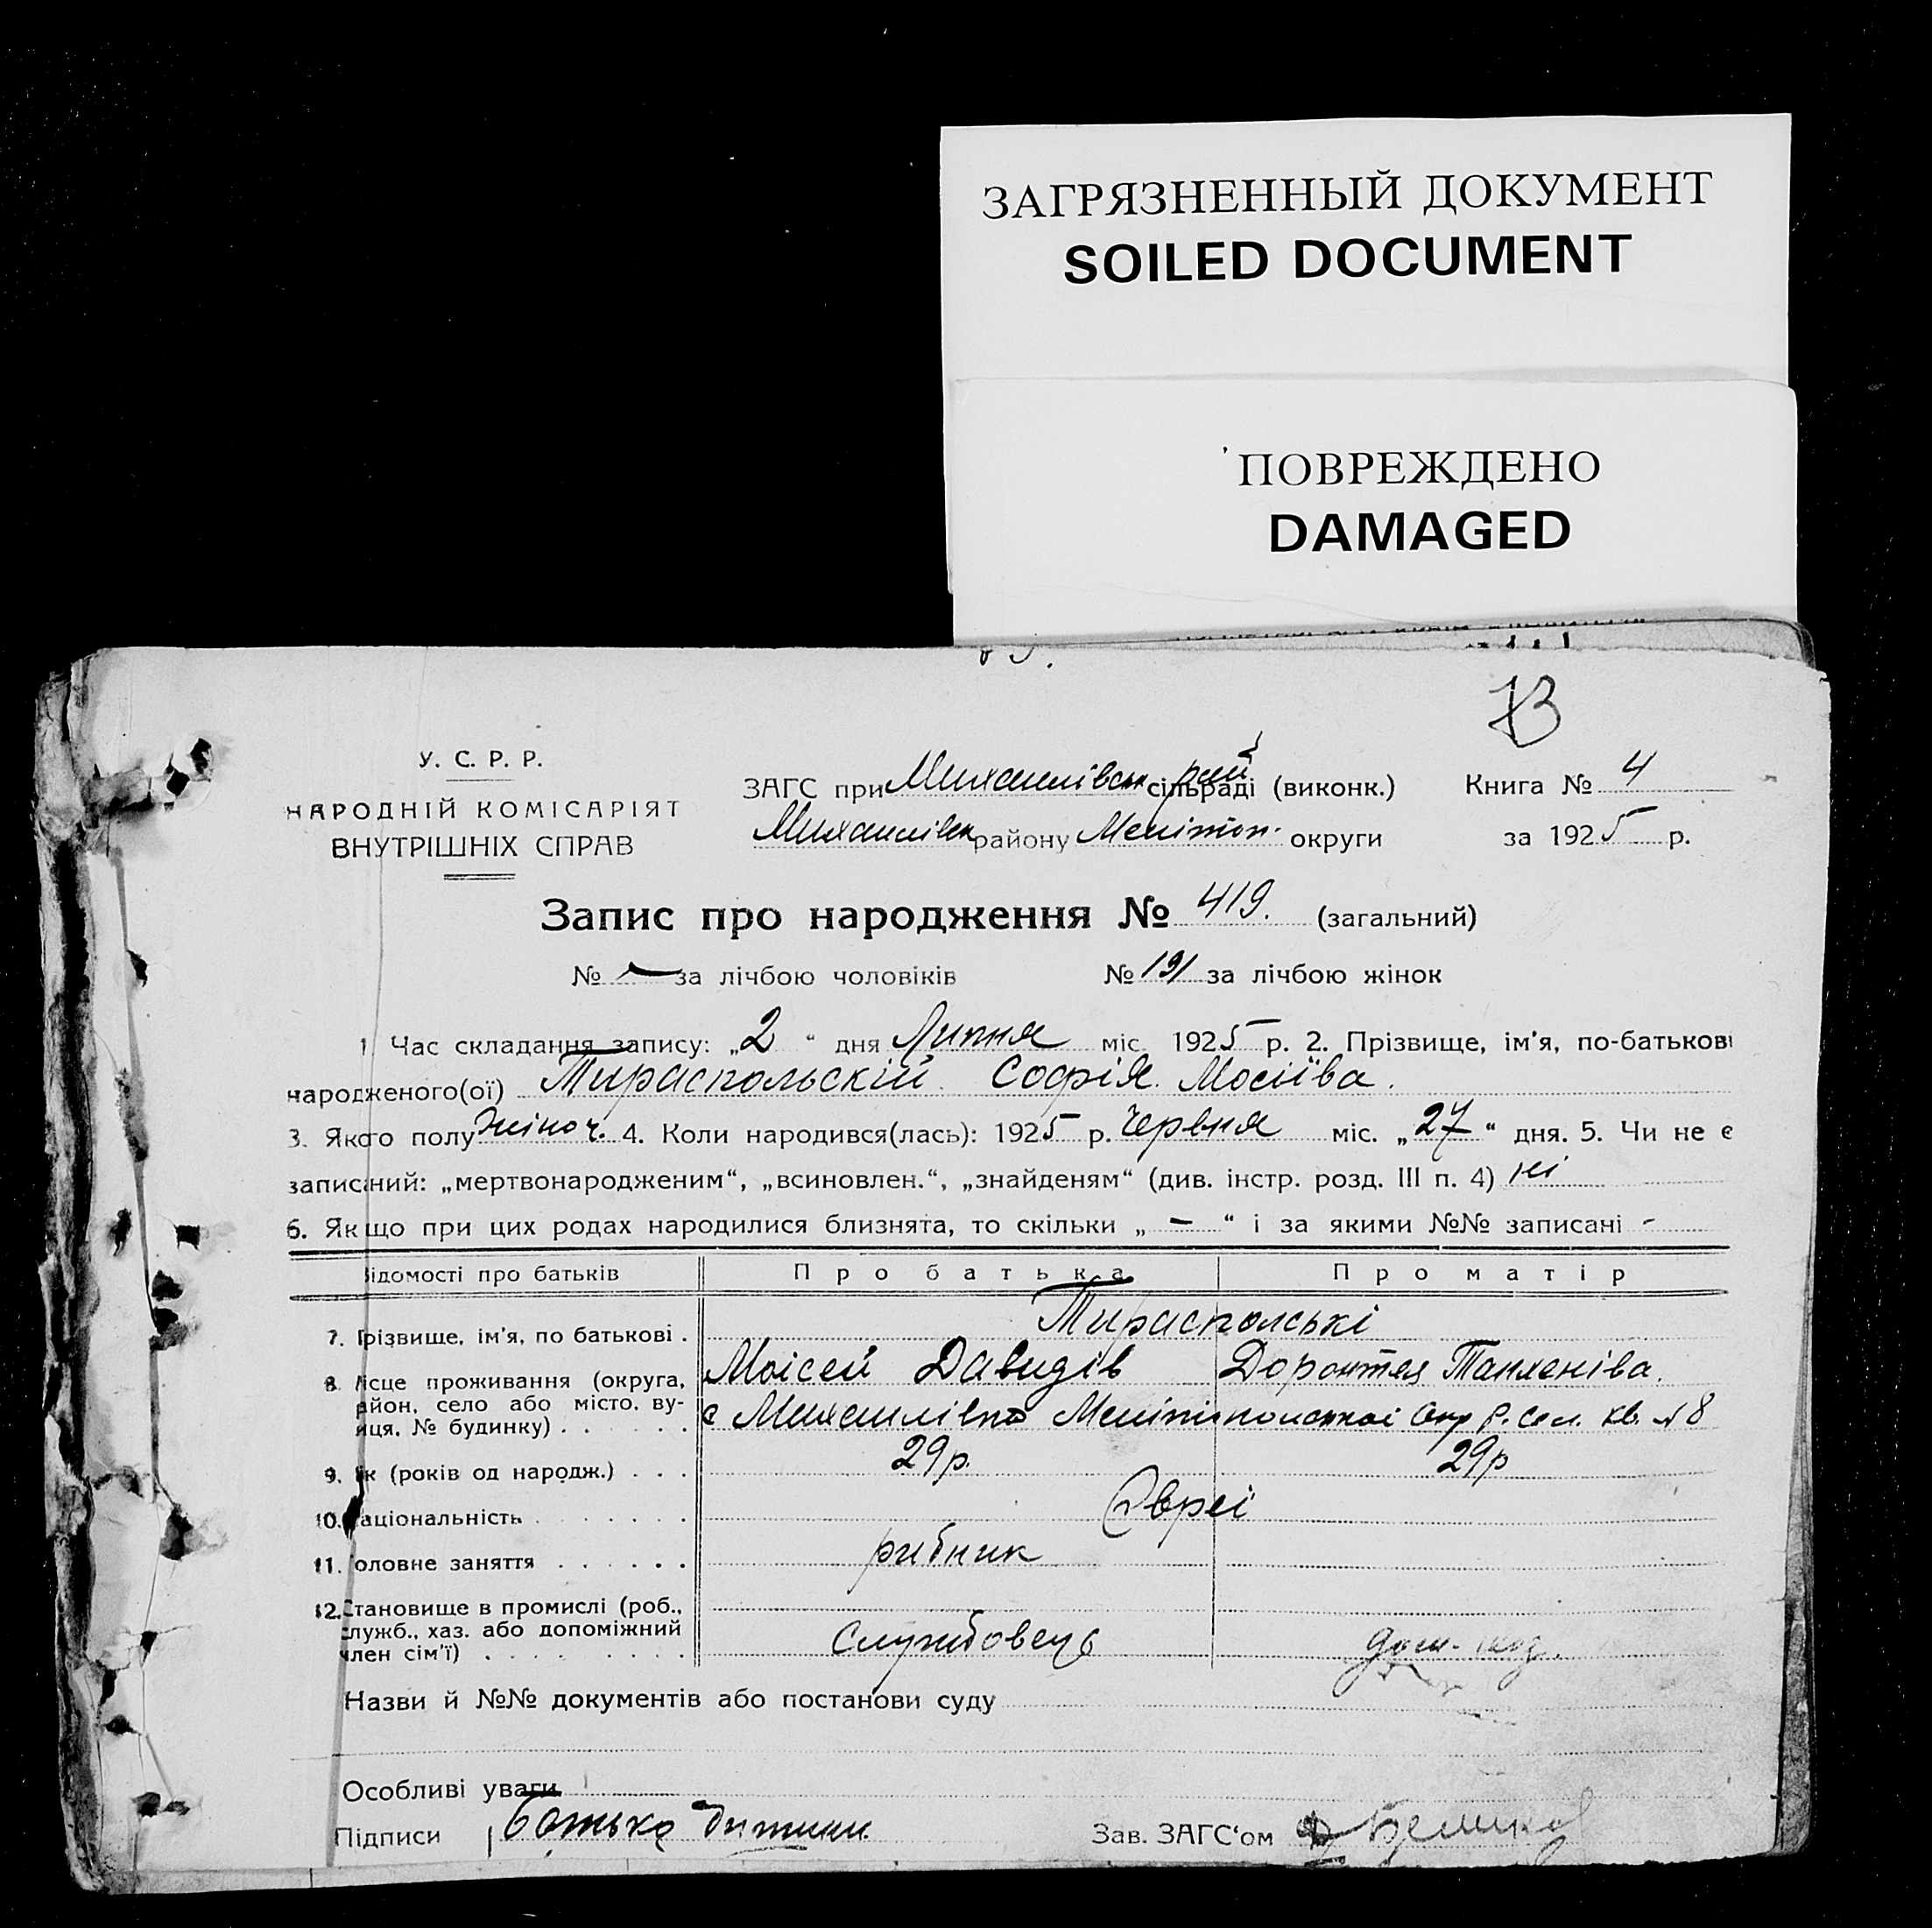 ЗАГРЯЗНЕННЫЙ ДОКУМЕНТ
SOILED DOCUMENT
ПОВРЕЖДЕНО
DAMAGED
73
У. С. Р. Р.
НАРОДНІЙ КОМІСАРІЯТ
ВНУТРІШНІХ СПРАВ
ЗАГС при Михайлівськ рай сільраді (виконк.) Книга № 4
Михайлівск району Мелітоп. округи за 1925 р.
Запис про народження № 419. (загальний)
№ - за лічбою чоловіків № 191 за лічбою жінок
1 Час складання запису: „2 “ дня Липня міс. 1925 р. 2. Прізвище, ім'я, по-батькові
народженого(ої) Тираспольскій Софія Мосіїва.
3. Якого полу Жіноч. 4. Коли народився(лась): 1925 р. Червня міс. „27“ дня. 5. Чи не є
записаний: „мертвонародженим“, „всиновлен.“, „знайденям“ (див. інстр. розд. III п. 4) ні
6. Якщо при цих родах народилися близнята, то скільки „ — “ і за якими №№ записані -
ідомості про батьків Про батька Про матір
7. Прізвище, ім'я, по батькові . Тираспольські
Моісей Давидів
8. ісце проживання (округа, район, село або місто, вулиця, № будинку) . . . . . . с Михайлівка Мелітопольської Окр кв. № 8
9. ік (років од народж.) . . . 29р. 29р
10. аціональність . . . . . . . . Євреї
11. оловне заняття . . . . . . рибник
12. Становище в промислі (роб., служб., хаз. або допоміжний член сім'ї) . . . . . . . . . Службовець дом.
Назви й №№ документів або постанови суду
Особливі уваги
Підписи Батько дитини Зав. ЗАГС'ом